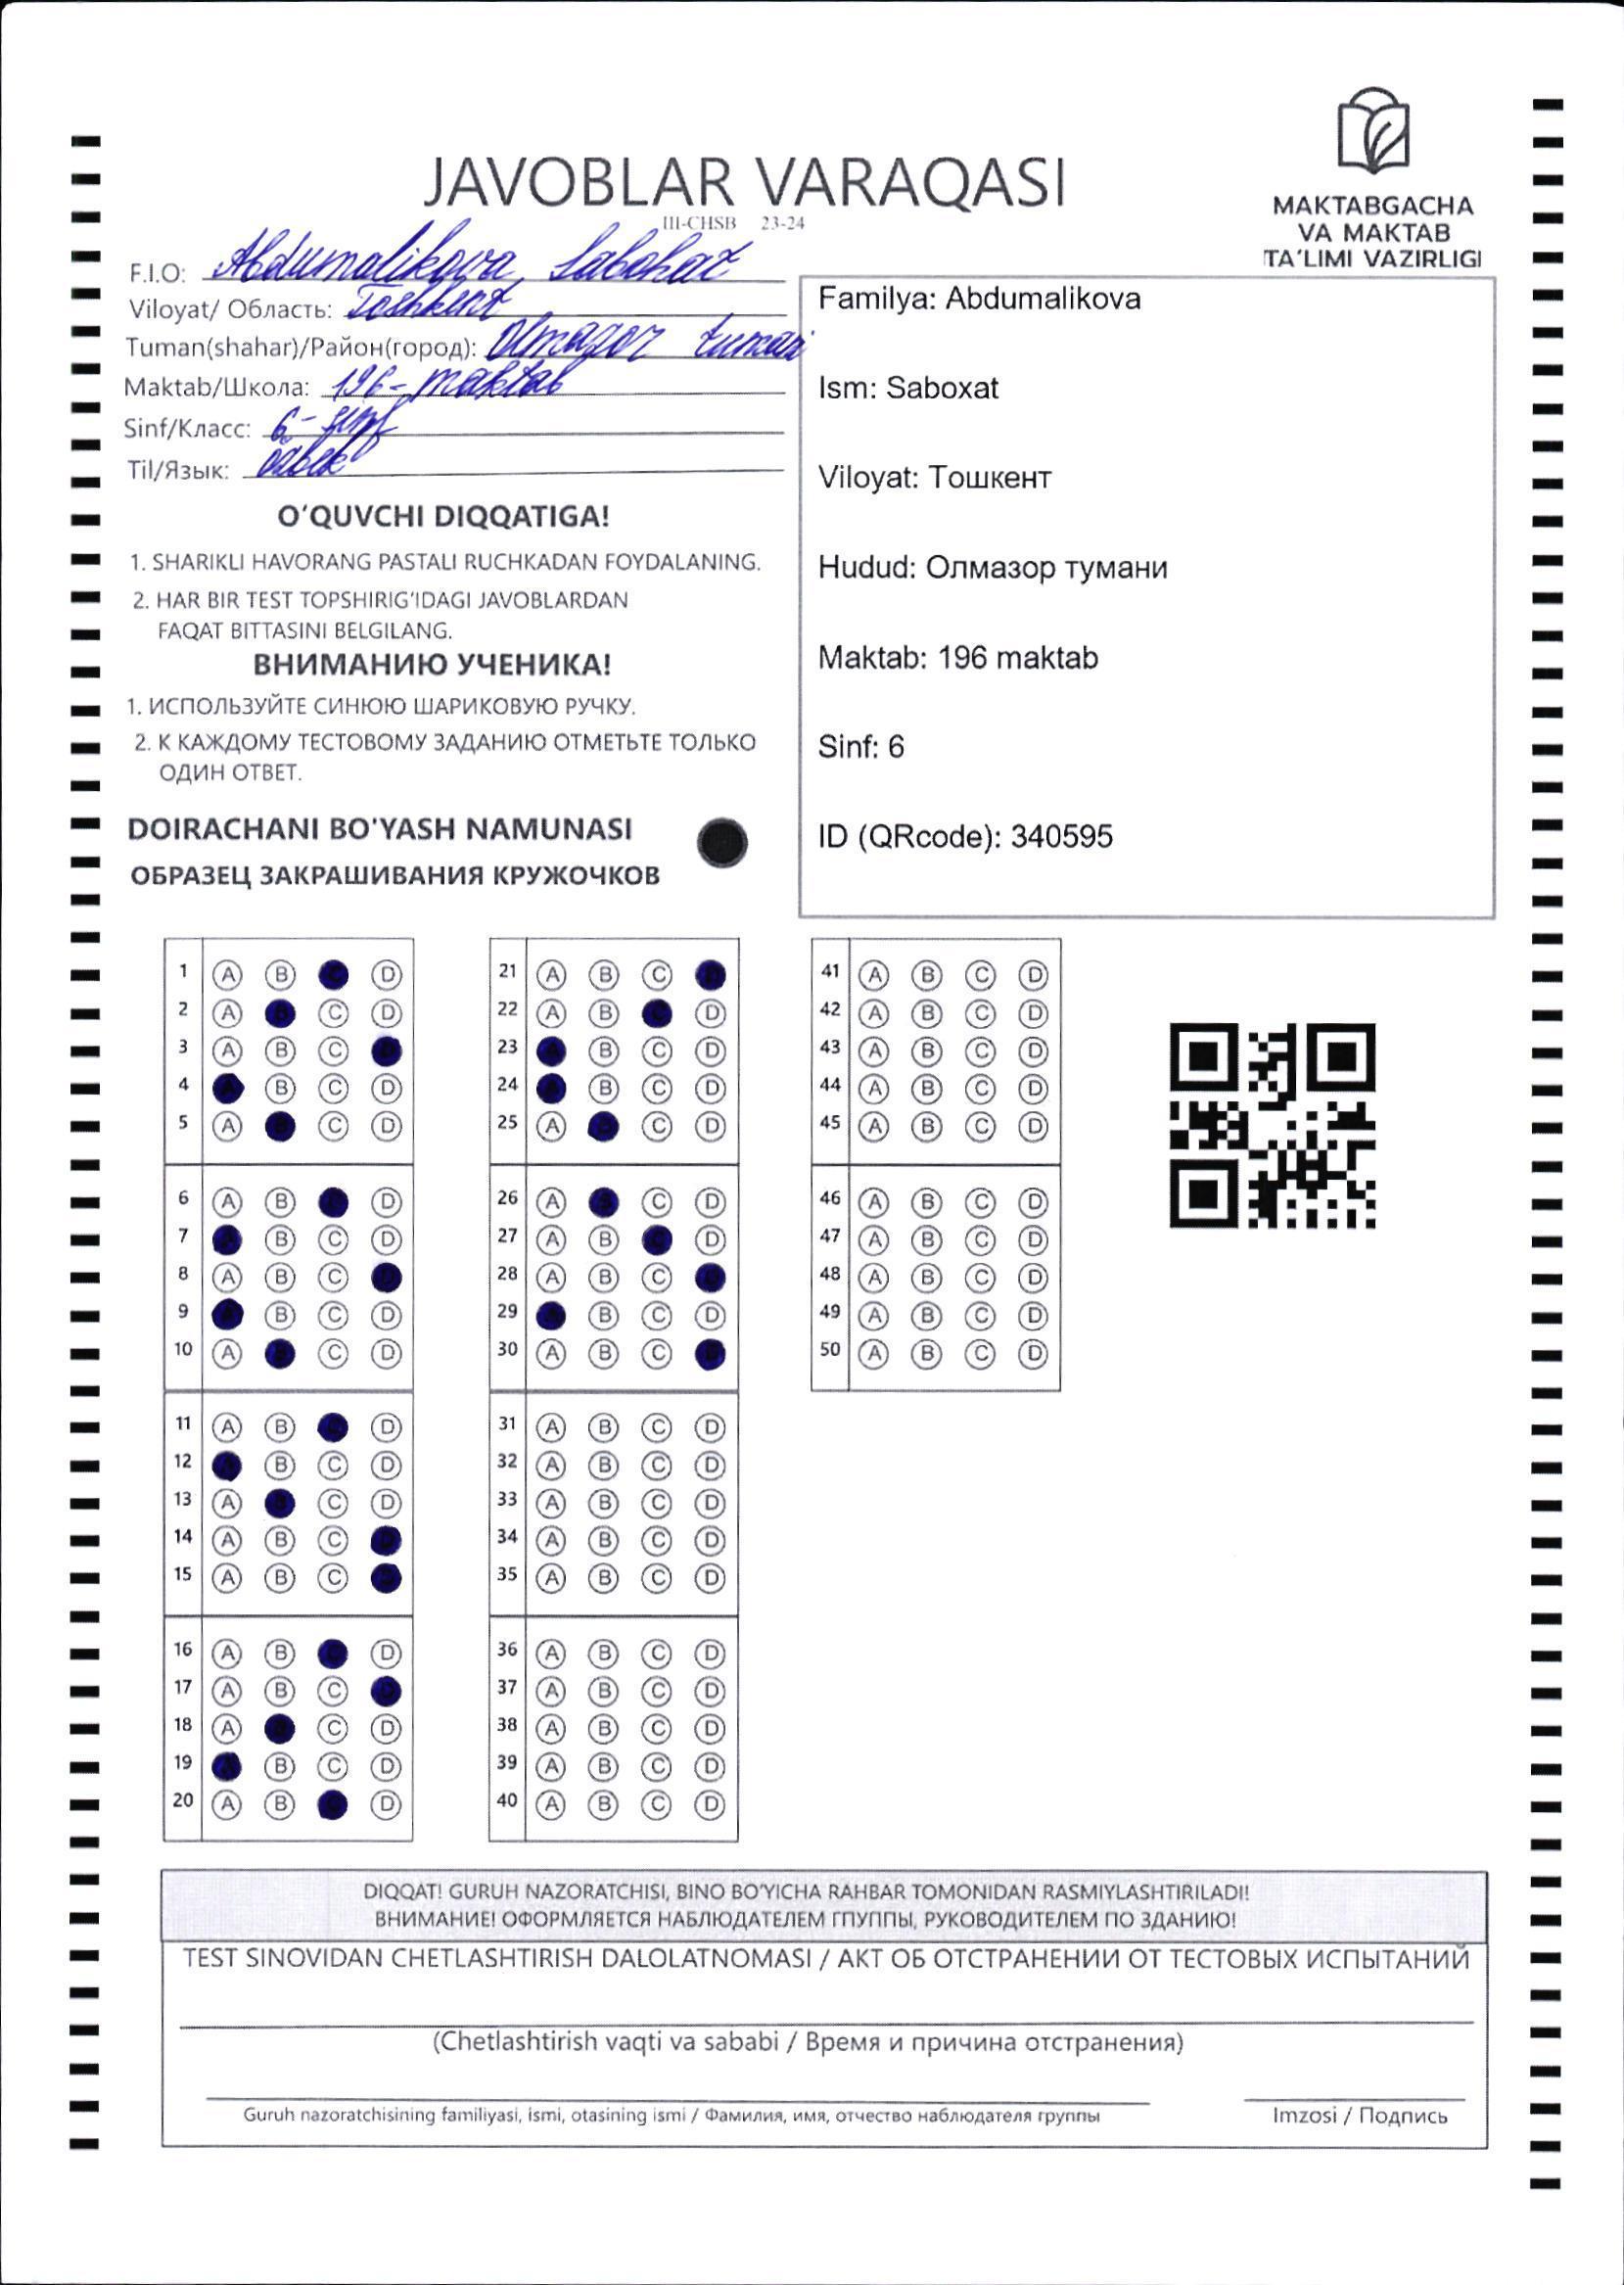 JAVOBLAR VARAQASI
III-CHSB 23-24
MAKTABGACHA
VA MAKTAB
TA'LIMI VAZIRLIGI
F.I.O: Abdumalikova Sabohat
Viloyat/ Область: Toshkent
Tuman(shahar)/Район(город): Olmazor tumani
Maktab/Школа: 196- maktab
Sinf/Класс: 6- sinf
Til/Язык: o'zbek
Familya: Abdumalikova
Ism: Saboxat
Viloyat: Тошкент
Hudud: Олмазор тумани
Maktab: 196 maktab
Sinf: 6
ID (QRcode): 340595
O'QUVCHI DIQQATIGA!
1. SHARIKLI HAVORANG PASTALI RUCHKADAN FOYDALANING.
2. HAR BIR TEST TOPSHIRIG'IDAGI JAVOBLARDAN
FAQAT BITTASINI BELGILANG.
ВНИМАНИЮ УЧЕНИКА!
1. ИСПОЛЬЗУЙТЕ СИНЮЮ ШАРИКОВУЮ РУЧКУ.
2. К КАЖДОМУ ТЕСТОВОМУ ЗАДАНИЮ ОТМЕТЬТЕ ТОЛЬКО
ОДИН ОТВЕТ.
DOIRACHANI BO'YASH NAMUNASI
ОБРАЗЕЦ ЗАКРАШИВАНИЯ КРУЖОЧКОВ
1 A B C D
2 A B C D
3 A B C D
4 A B C D
5 A B C D
6 A B C D
7 A B C D
8 A B C D
9 A B C D
10 A B C D
11 A B C D
12 A B C D
13 A B C D
14 A B C D
15 A B C D
16 A B C D
17 A B C D
18 A B C D
19 A B C D
20 A B C D
21 A B C D
22 A B C D
23 A B C D
24 A B C D
25 A B C D
26 A B C D
27 A B C D
28 A B C D
29 A B C D
30 A B C D
31 A B C D
32 A B C D
33 A B C D
34 A B C D
35 A B C D
36 A B C D
37 A B C D
38 A B C D
39 A B C D
40 A B C D
41 A B C D
42 A B C D
43 A B C D
44 A B C D
45 A B C D
46 A B C D
47 A B C D
48 A B C D
49 A B C D
50 A B C D
DIQQAT! GURUH NAZORATCHISI, BINO BO'YICHA RAHBAR TOMONIDAN RASMIYLASHTIRILADI!
ВНИМАНИЕ! ОФОРМЛЯЕТСЯ НАБЛЮДАТЕЛЕМ ГПУППЫ, РУКОВОДИТЕЛЕМ ПО ЗДАНИЮ!
TEST SINOVIDAN CHETLASHTIRISH DALOLATNOMASI / АКТ ОБ ОТСТРАНЕНИИ ОТ ТЕСТОВЫХ ИСПЫТАНИЙ
(Chetlashtirish vaqti va sababi / Время и причина отстранения)
Guruh nazoratchisining familiyasi, ismi, otasining ismi / Фамилия, имя, отчество наблюдателя группы
Imzosi / Подпись